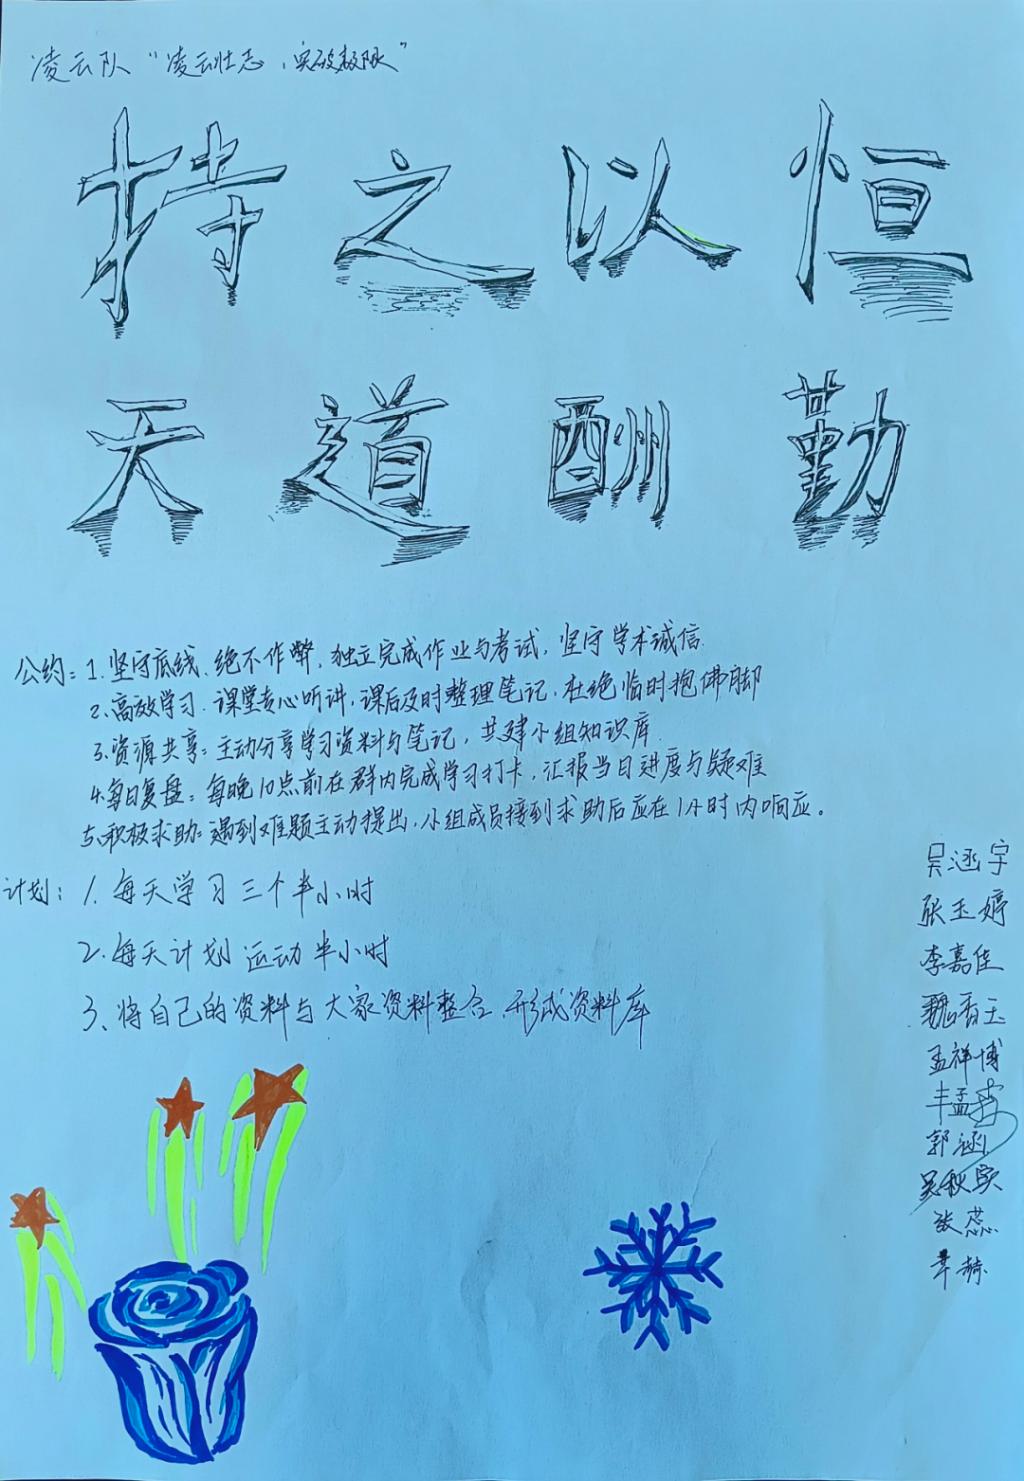 凌云队“凌云壮志，突破极限”
持之以恒
天道酬勤
公约：1.坚守底线、绝不作弊，独立完成作业与考试，坚守学术诚信.
2、高效学习．课堂专心听讲，课后及时整理笔记，杜绝临时抱佛脚
3.资源共享：主动分享学习资料与笔记，共建小组知识库.
4.每日复盘：每晚10点前在群内完成学习打卡，汇报当日进度与疑难
5、积极求助：遇到难题主动提出，小组成员接到求助后应在1小时内响应。
计划：1.每天学习三个半小时
2.每天计划运动半小时
3、将自己的资料与大家资料整合.形成资料库
吴涵宇
张玉婷
李嘉佳
魏香玉
孟祥博
丰孟
郭涵
吴秋实
张蕊